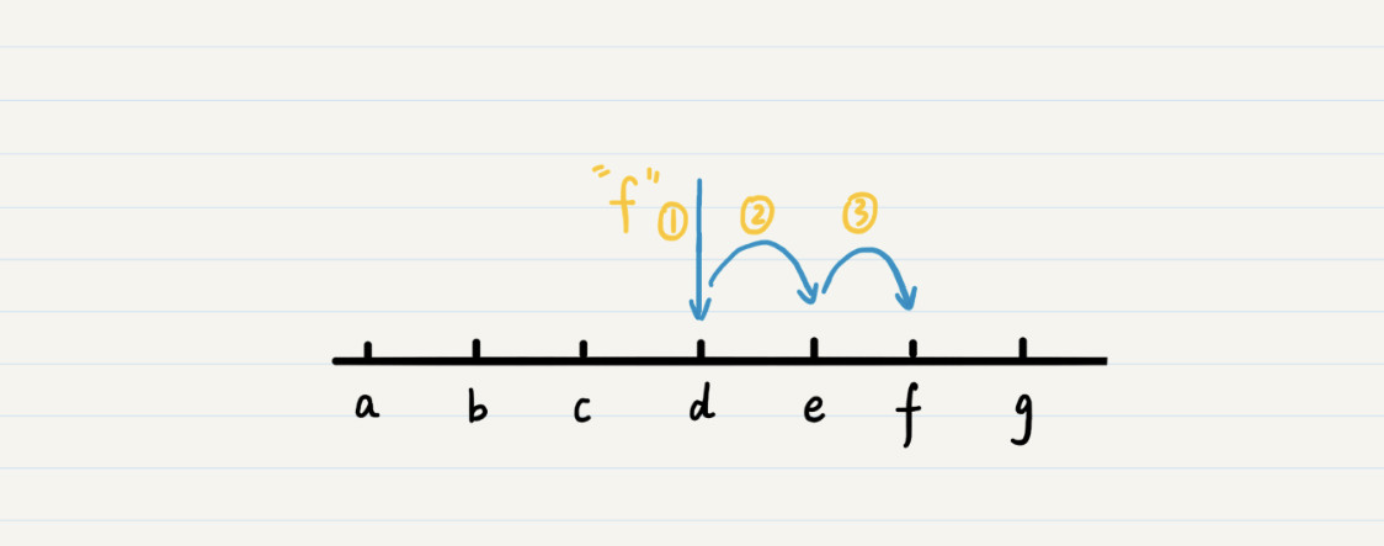 "f" ① ② ③
a b c d e f g